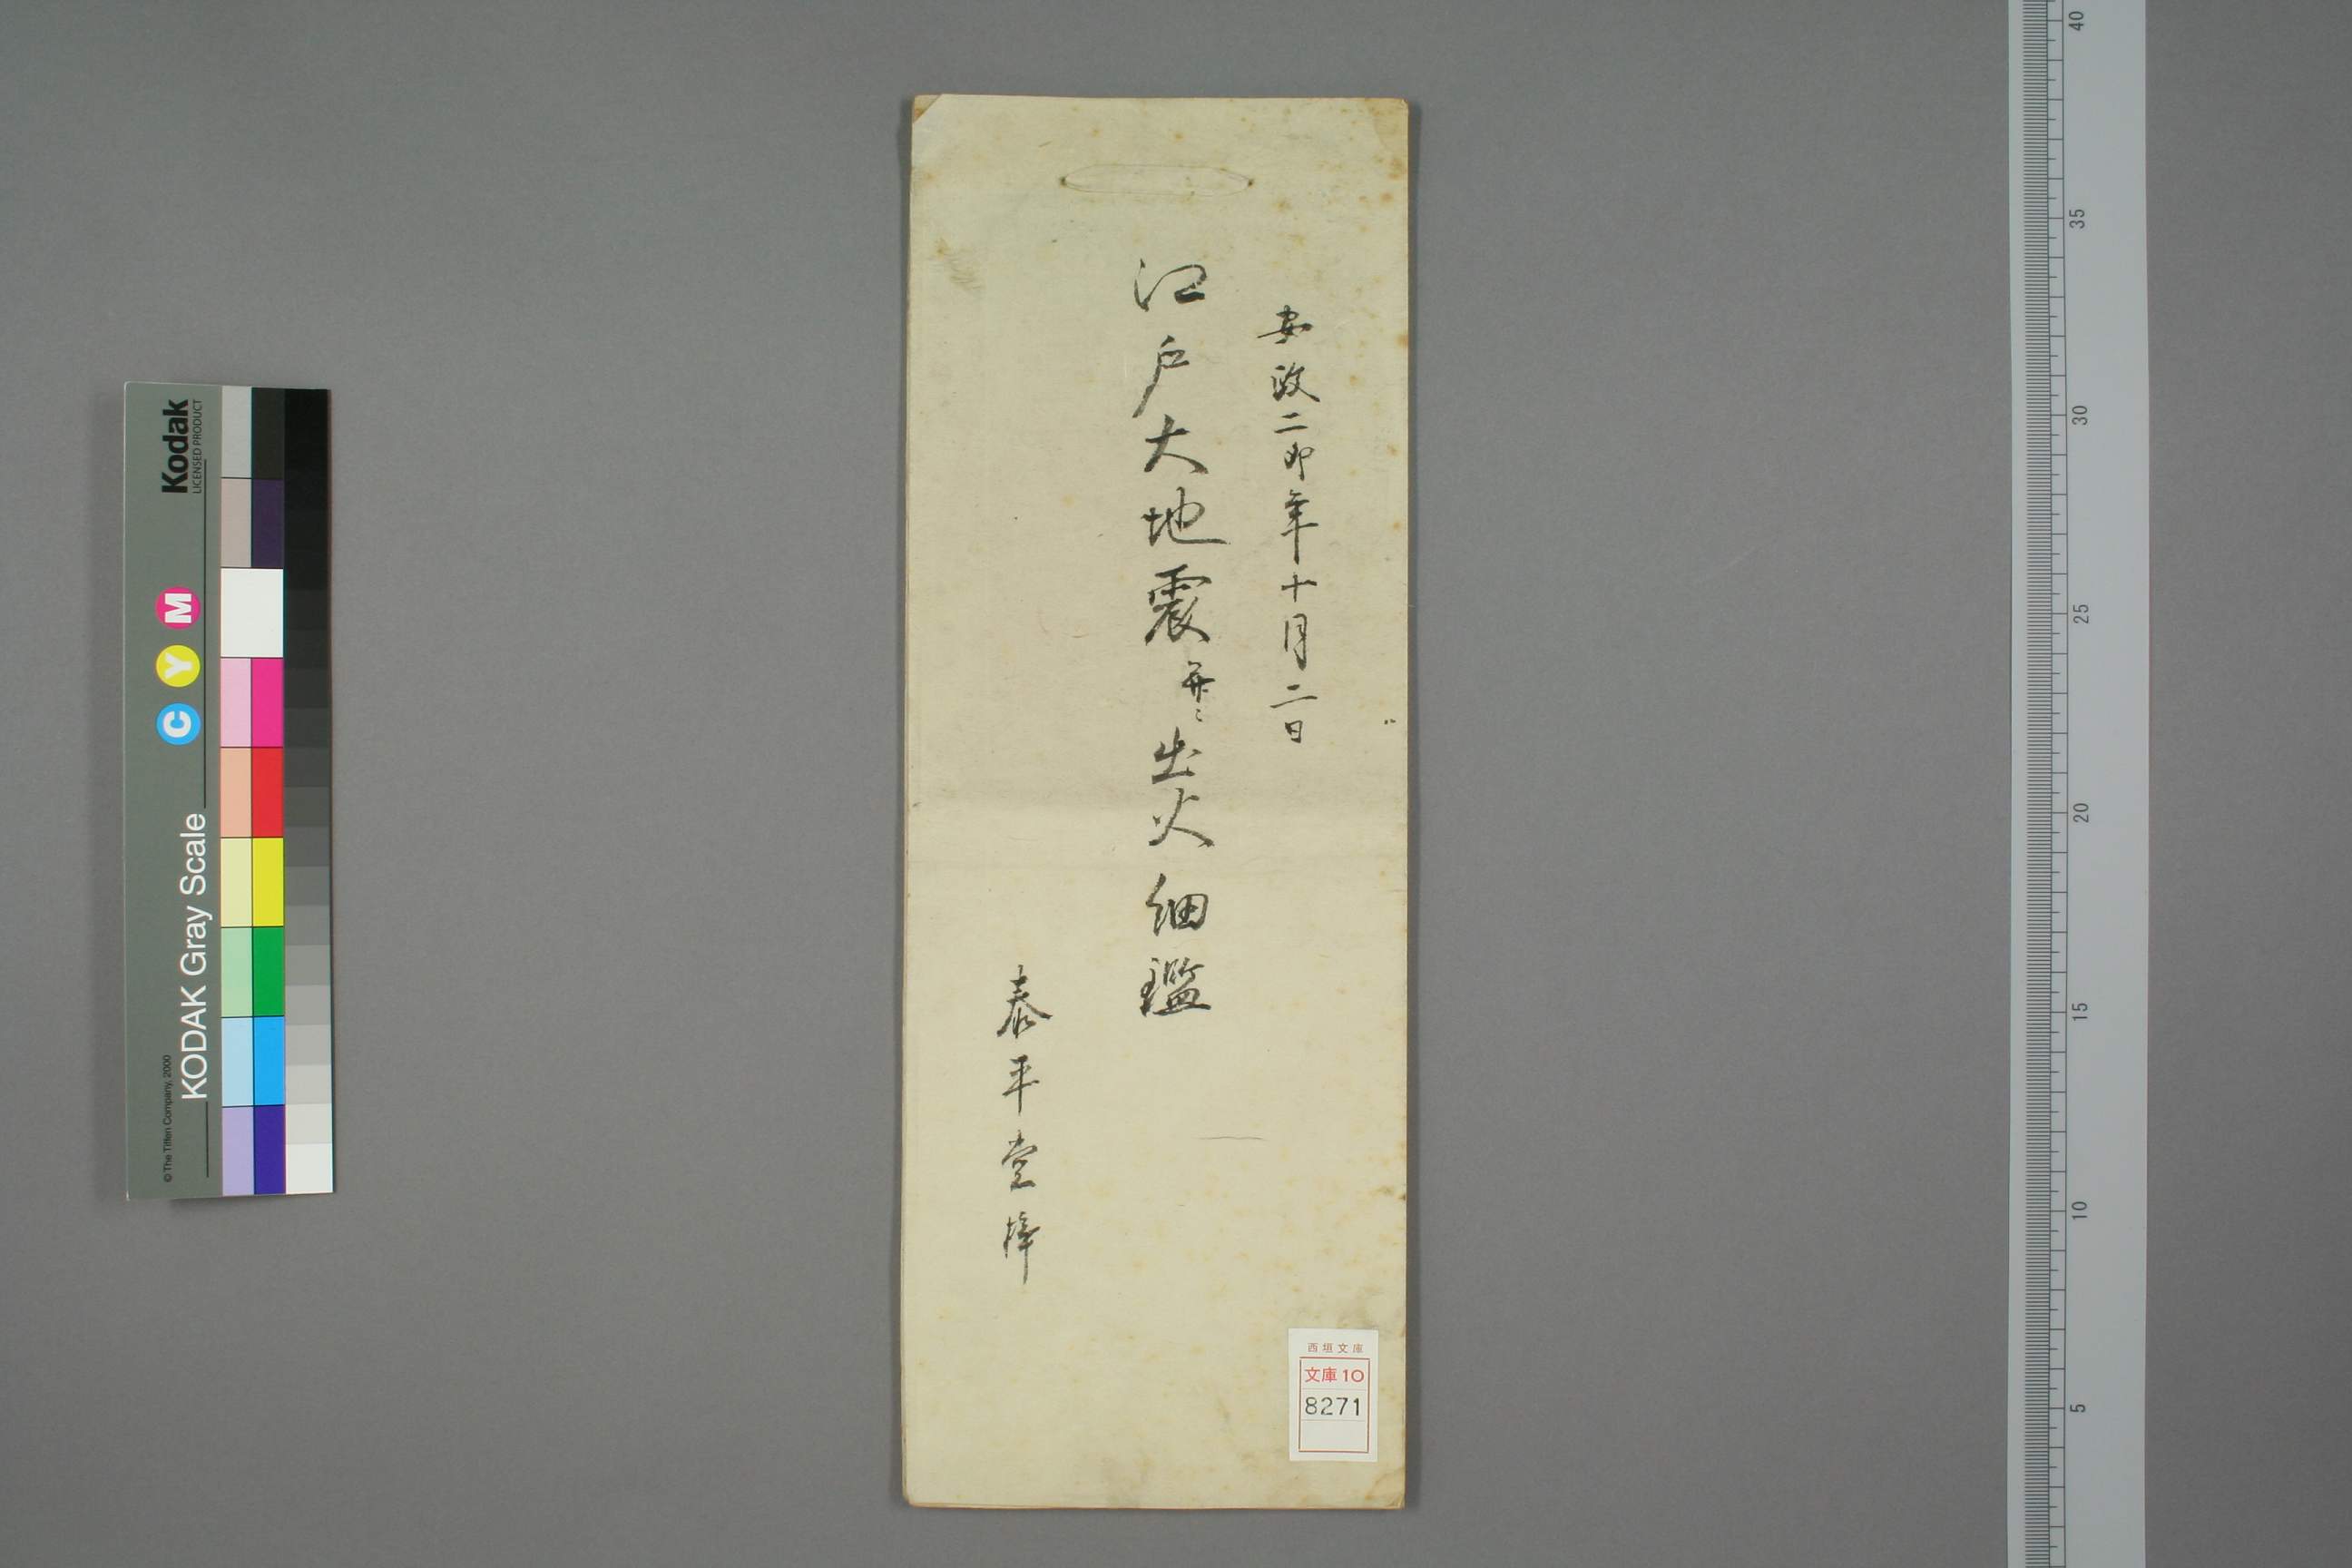 安政二卯年十月二日
江戸大地震并ニ出火細鑑
泰平堂梓
西垣文庫
文庫10
8271
Kodak
LICENSED PRODUCT
C Y M
KODAK Gray Scale
© The Tiffen Company, 2000
40
35
30
25
20
15
10
5